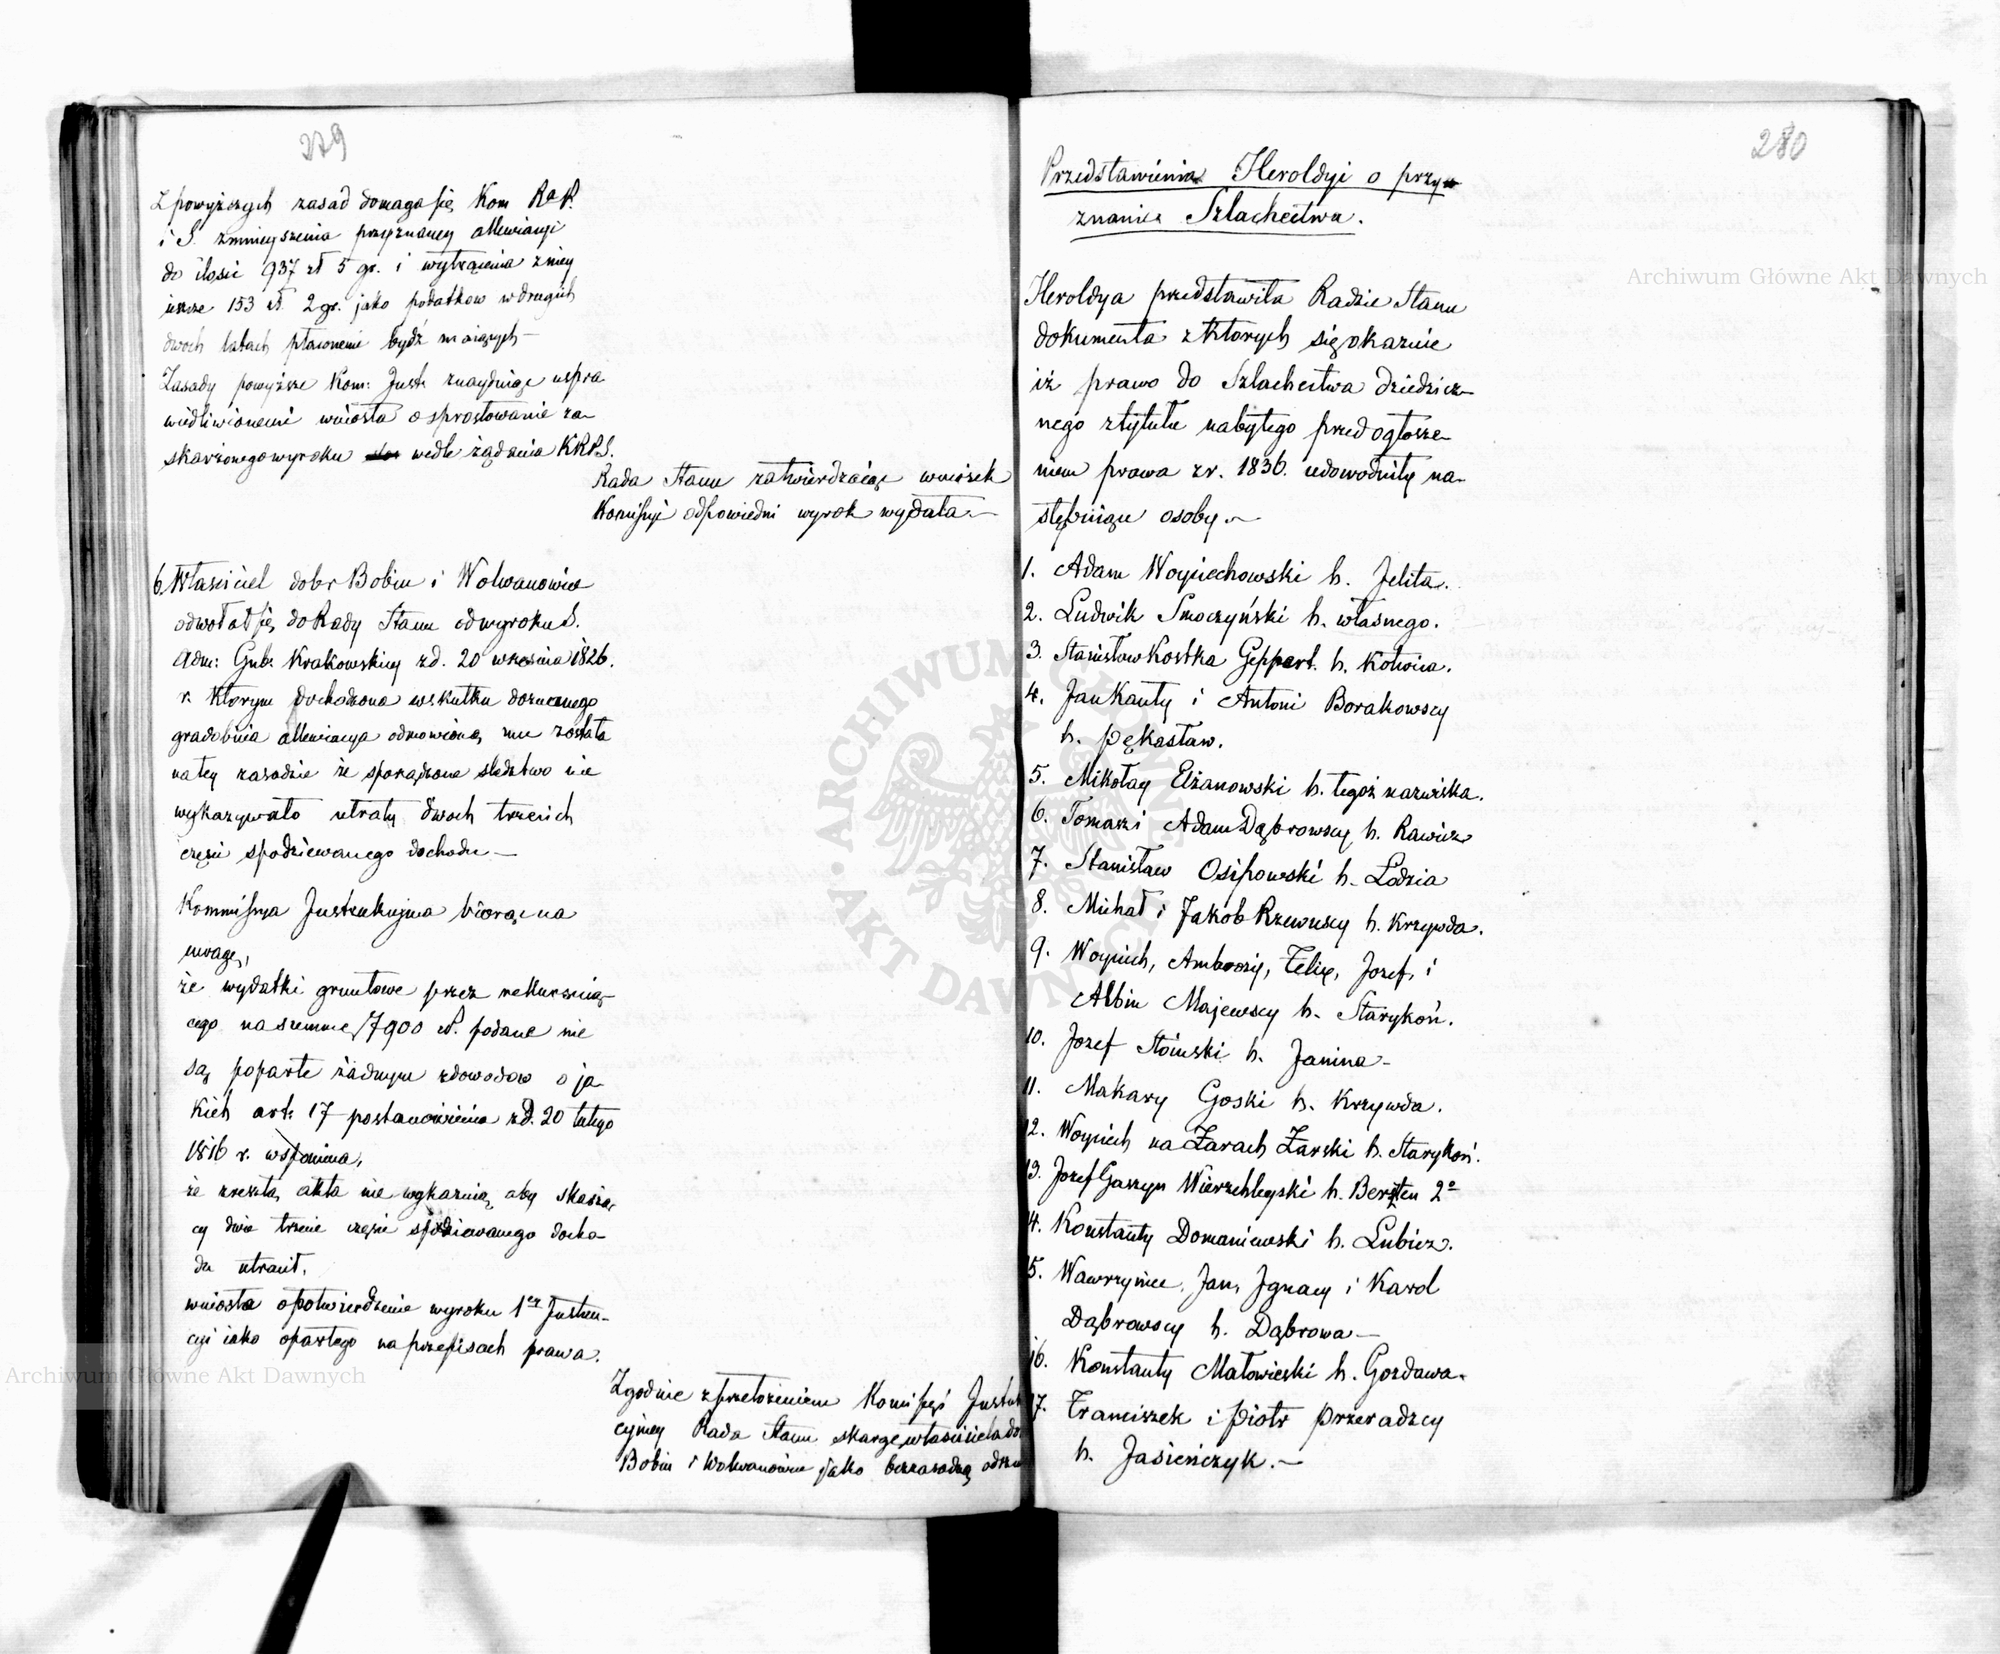 279
Z powyższych zasad domaga się Kom R. P.
i S. zmnieyszenia przyznaney allewiacyi
do ilości 937 zł 5 gr. i wytrącenia z niey
jeszcze 153 zł. 2 gr. jako podatkow w drugich
dwoch latach płaconemi bydź maiących —
Zasady powyższe Kom: Just. znayduiąc uspra
wiedliwionemi wniosła o sprostowanie za-
skarżonego wyroku wedle żądania KRPS.
Rada Stanu zatwierdzaiąc wniosek
Komissyi odpowiedni wyrok wydała. —
6. Właściciel dobr Bobin i Wolwanowice
odwołał się do Rady Stanu od wyroku S.
Adm: Gub: Krakowskiey z d. 20 września 1826.
r. ktorym dochodzona w skutku doznanego
gradobicia allewiacya odmowioną mu została
na tey zasadzie że sporządzone śledztwo nie
wykazywało utraty dwoch trzecich
części spodziewanego dochodu —
Kommissya Instrukcyjna biorąc na
uwagę,
że wydatki gruntowe przez rekursuią-
cego na summę 17900 zł. podane nie
są poparte żadnym z dowodow o ja-
kich art. 17 postanowienia z d. 20 lutego
1816 r. wspomina,
że zreszta akta nie wykazuią aby skarżą
cy dwie trzecie części spodziewanego docho-
du utracił,
wniosła o potwierdzenie wyroku 1ey Instan-
cyi iako opartego na przepisach prawa.
Zgodnie z przełożeniem Komissyi Instruk
cyjney Rada Stanu skargę właściciela do
Bobin i Wolwanowice jako bezzasadną odrzu
280
Przedstawienia Heroldyi o przy
znanie Szlachectwa.
Heroldya przedstawiła Radzie Stanu
dokumenta z ktorych się okazuie
iż prawo do Szlachectwa dziedzicz-
nego z tytułu nabytego przed ogłosze-
niem prawa z r. 1836. udowodniły na-
stępuiące osoby. —
1. Adam Woyciechowski h. Jelita.
2. Ludwik Smoczyński h. własnego.
3. Stanisław Kostka Geppert. h. Kotwica.
4. Jan Kanty i Antoni Borakowscy
h. Pękosław.
5. Mikołay Elżanowski h. tegoż nazwiska.
6. Tomasz i Adam Dąbrowscy h. Rawicz
7. Stanisław Osipowski h. Łodzia
8. Michał i Jakób Rzewuscy h. Krzywda.
9. Woyciech, Ambroży, Felix, Jozef, i
Albin Majewscy h. Starykoń.
10. Jozef Stoinski h. Janina —
11. Makary Goski h. Krzywda.
12. Woyciech na Żarach Żarski h. Starykoń.
13. Jozef Gaszyn Wierzchleyski h. Bersten 2o
14. Konstanty Domaniewski h. Lubicz.
15. Wawrzyniec, Jan, Ignacy i Karol
Dąbrowscy h. Dąbrowa —
16. Konstanty Małowieski h. Gozdawa.
17. Franciszek i Piotr Przeradzcy
h. Jasieńczyk. —
Archiwum Główne Akt Dawnych
Archiwum Główne Akt Dawnych
ARCHIWUM GŁÓWNE AKT DAWNYCH